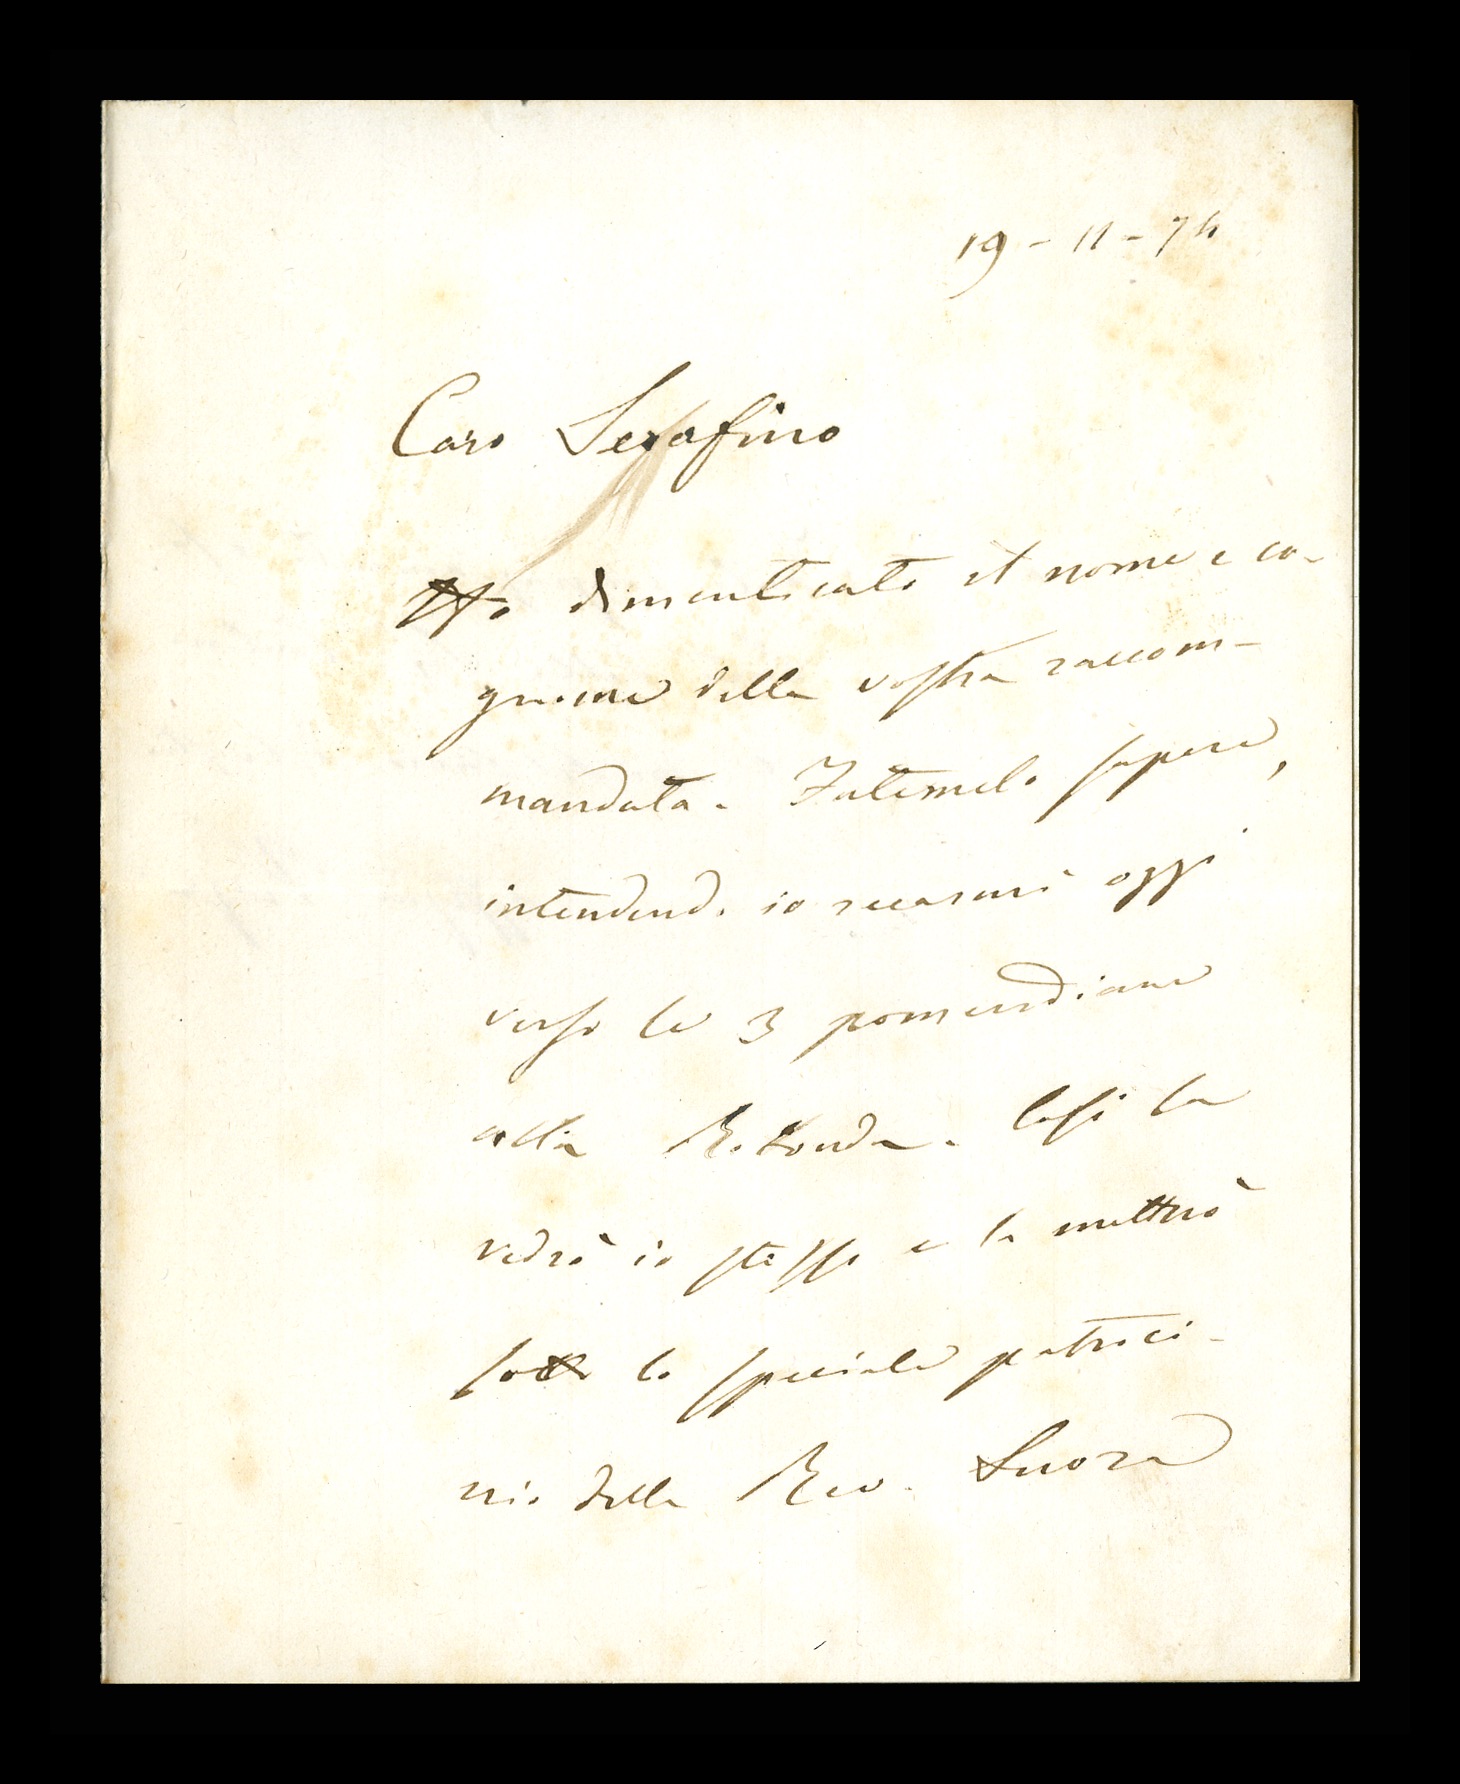 19 - 11 - 74
Caro Serafino
Ho dimenticato il nome e co-
gnome della vostra raccom-
mandata. Fatemelo sapere,
intendendo io recarmi oggi
verso le 3 pomeridiane
alla Rotonda. Così la
vedrò io stesso e la metterò
sotto lo speciale patroci-
nio della Rev. Suora